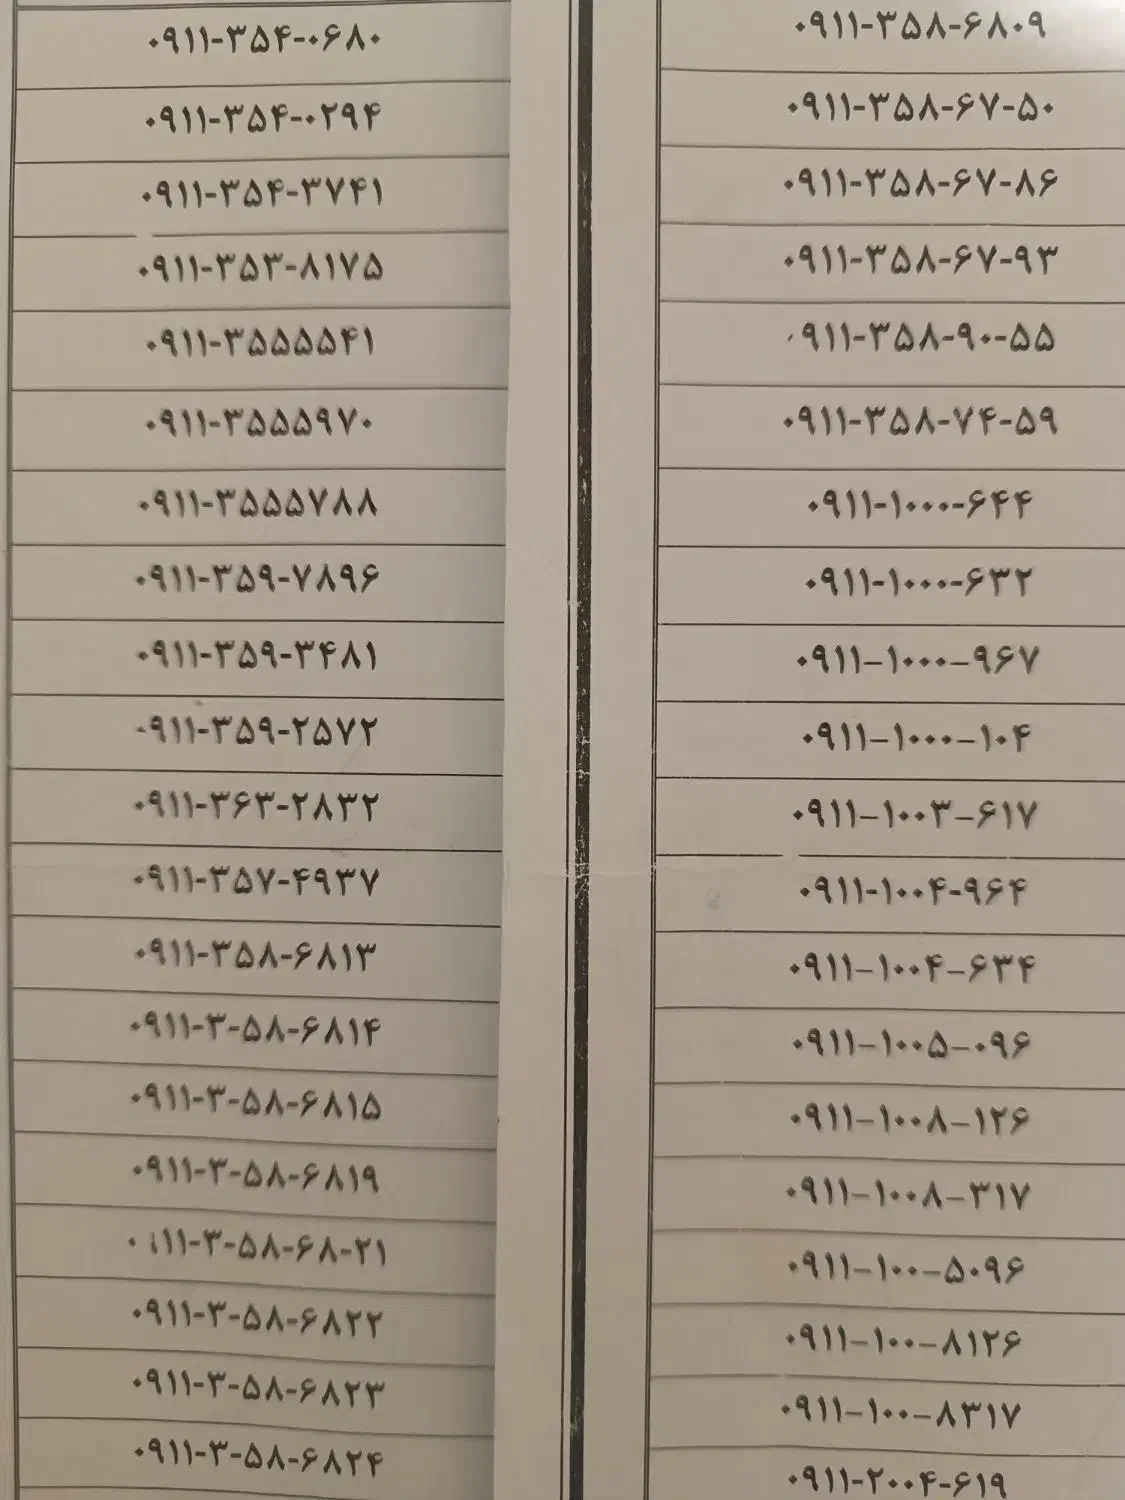 ۰۹۱۱-۳۵۴-۰۶۸۰
۰۹۱۱-۳۵۴-۰۲۹۴
۰۹۱۱-۳۵۴-۳۷۴۱
۰۹۱۱-۳۵۳-۸۱۷۵
۰۹۱۱-۳۵۵۵۵۴۱
۰۹۱۱-۳۵۵۵۹۷۰
۰۹۱۱-۳۵۵۵۷۸۸
۰۹۱۱-۳۵۹-۷۸۹۶
۰۹۱۱-۳۵۹-۳۴۸۱
۰۹۱۱-۳۵۹-۲۵۷۲
۰۹۱۱-۳۶۳-۲۸۳۲
۰۹۱۱-۳۵۷-۴۹۳۷
۰۹۱۱-۳۵۸-۶۸۱۳
۰۹۱۱-۳-۵۸-۶۸۱۴
۰۹۱۱-۳-۵۸-۶۸۱۵
۰۹۱۱-۳-۵۸-۶۸۱۹
۰۹۱۱-۳-۵۸-۶۸-۲۱
۰۹۱۱-۳-۵۸-۶۸۲۲
۰۹۱۱-۳-۵۸-۶۸۲۳
۰۹۱۱-۳-۵۸-۶۸۲۴
۰۹۱۱-۳۵۸-۶۸۰۹
۰۹۱۱-۳۵۸-۶۷-۵۰
۰۹۱۱-۳۵۸-۶۷-۸۶
۰۹۱۱-۳۵۸-۶۷-۹۳
۰۹۱۱-۳۵۸-۹۰-۵۵
۰۹۱۱-۳۵۸-۷۴-۵۹
۰۹۱۱-۱۰۰۰-۶۴۴
۰۹۱۱-۱۰۰۰-۶۳۲
۰۹۱۱-۱۰۰۰-۹۶۷
۰۹۱۱-۱۰۰۰-۱۰۴
۰۹۱۱-۱۰۰۳-۶۱۷
۰۹۱۱-۱۰۰۴-۹۶۴
۰۹۱۱-۱۰۰۴-۶۳۴
۰۹۱۱-۱۰۰۵-۰۹۶
۰۹۱۱-۱۰۰۸-۱۲۶
۰۹۱۱-۱۰۰۸-۳۱۷
۰۹۱۱-۱۰۰-۵۰۹۶
۰۹۱۱-۱۰۰-۸۱۲۶
۰۹۱۱-۱۰۰-۸۳۱۷
۰۹۱۱-۲۰۰۴-۶۱۹